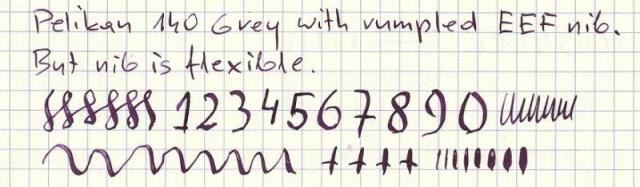 Pelikan 140 Grey with rumpled EEF nib.
But nib is flexible.
1234567890